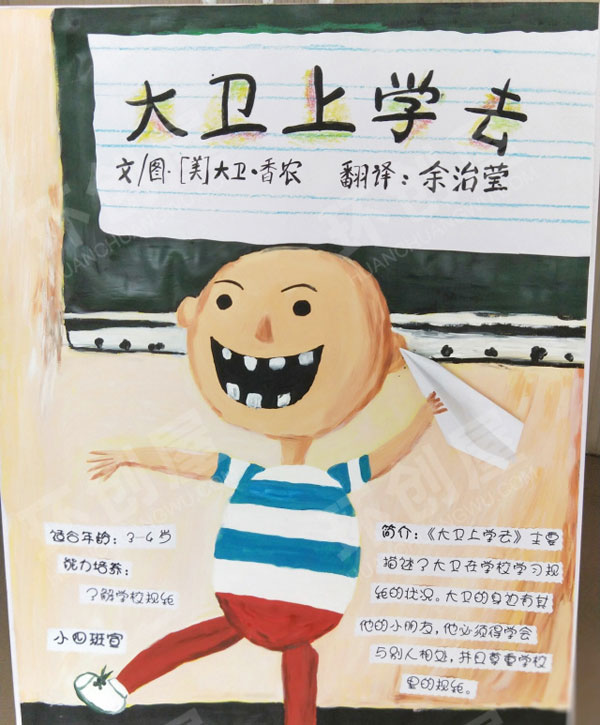 大卫上学去
文/图·[美]大卫·香农 翻译:余治莹
适合年龄:3-6岁
能力培养:
了解学校规矩
小四班宣
简介:《大卫上学去》主要
描述了大卫在学校学习规
矩的状况。大卫的身边有其
他的小朋友,他必须得学会
与别人相处,并且尊重学校
里的规矩。